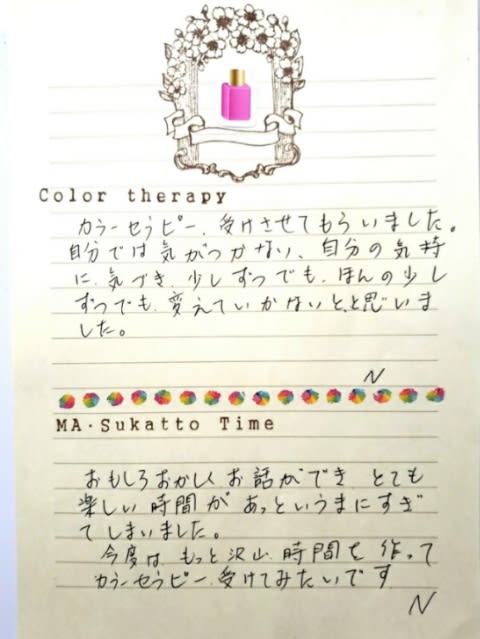 Color therapy
カラーセラピー、受けさせてもらいました。
自分では気がつかない、自分の気持
に、気づき、少しずつでも、ほんの少し
ずつでも、変えていかないと、と思いま
した。
N
MA・Sukatto Time
おもしろおかしく お話ができ、とても
楽しい時間が あっというまにすぎ
てしまいました。
今度は もっと沢山、時間を 作って
カラーセラピー、受けてみたいです
N